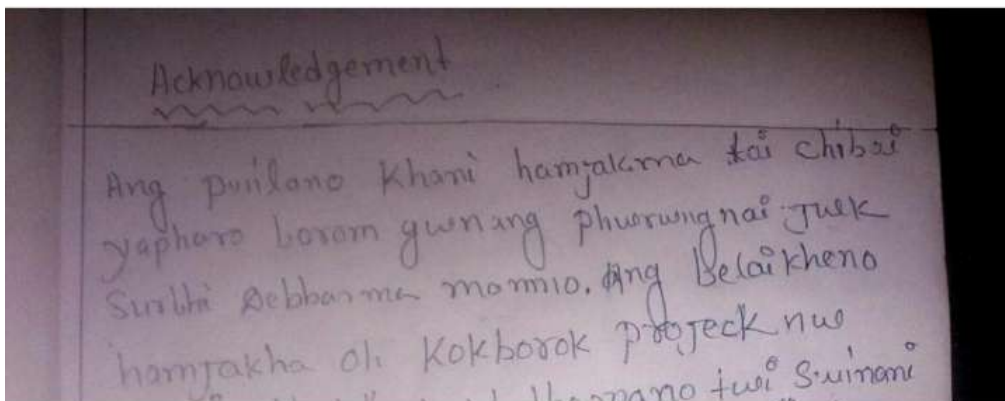 Acknowledgement
Ang puilano Khani hamjakma tai chibai
yapharo borom gwnang phurungnai-Juk
Surbhi Debbarma mamno. Ang Belaikheno
hamjakha oh Kokborok projeck nwo
twi Suinani